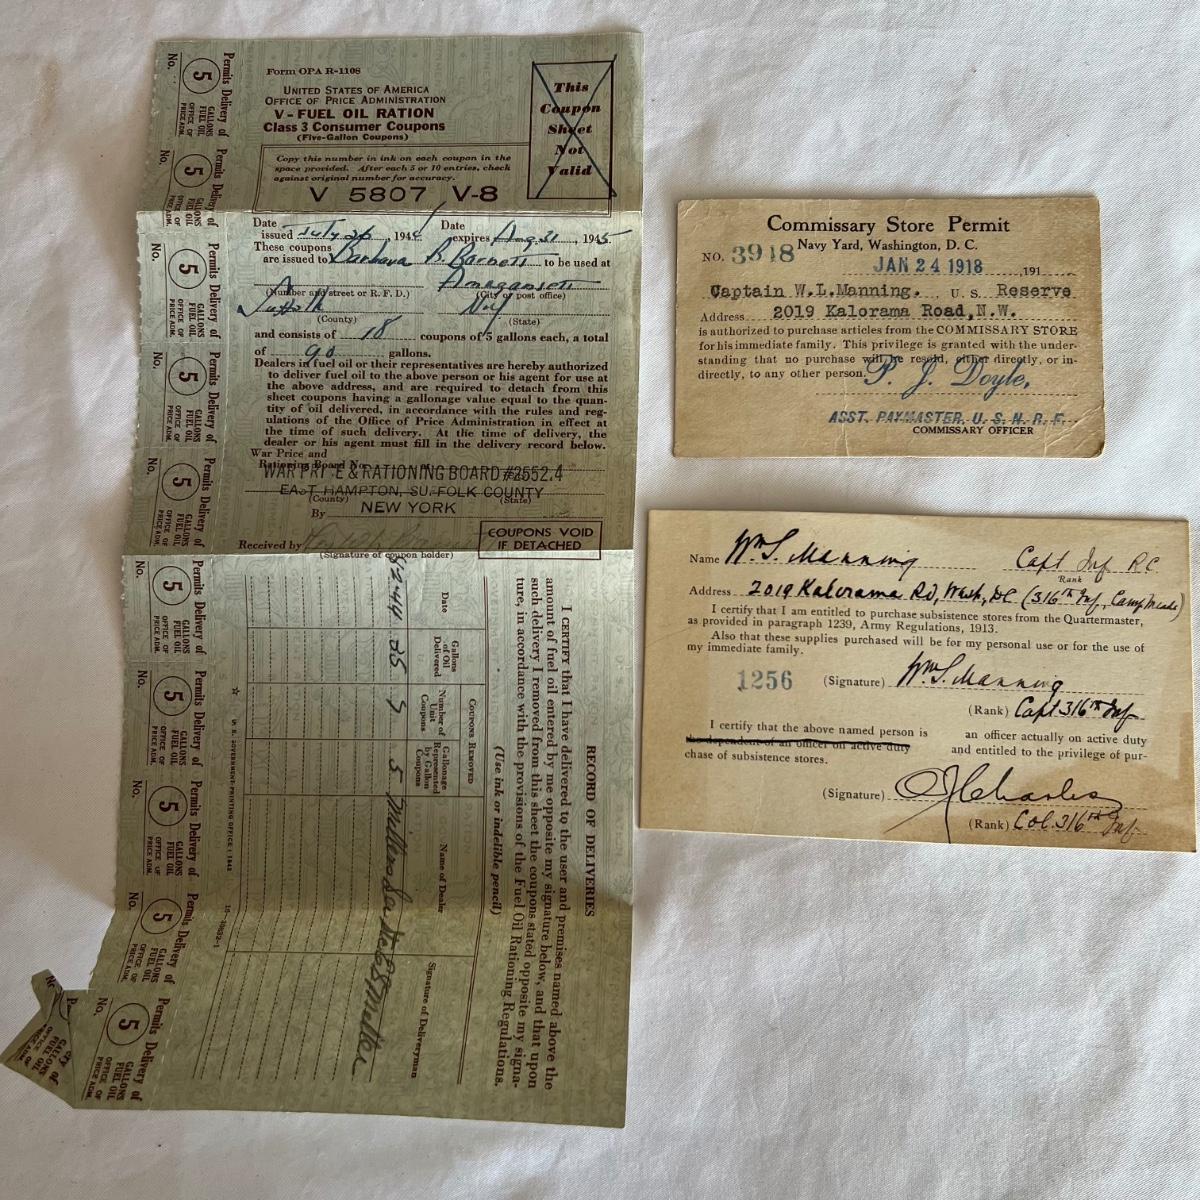 Form OPA R-1108
UNITED STATES OF AMERICA
OFFICE OF PRICE ADMINISTRATION
V - FUEL OIL RATION
Class 3 Consumer Coupons
(Five-Gallon Coupons)
This
Coupon
Sheet
Not
Valid
Copy this number in ink on each coupon in the
space provided. After each 5 or 10 entries, check
against original number for accuracy.
V 5807 V-8
Date issued July 26, 1944 Date expires Aug 31, 1945
These coupons
are issued to Barbara B. Barnett to be used at
Amagansett
(Number and street or R. F. D.) (City or post office)
Suffolk NY
(County) (State)
and consists of 18 coupons of 5 gallons each, a total
of 90 gallons.
Dealers in fuel oil or their representatives are hereby authorized
to deliver fuel oil to the above person or his agent for use at
the above address, and are required to detach from this
sheet coupons having a gallonage value equal to the quan-
tity of oil delivered, in accordance with the rules and reg-
ulations of the Office of Price Administration in effect at
the time of such delivery. At the time of delivery, the
dealer or his agent must fill in the delivery record below.
War Price and
Rationing Board No.
WAR PRICE & RATIONING BOARD #2552.4
EAST HAMPTON, SUFFOLK COUNTY
(County) (State)
NEW YORK
By
Received by
(Signature of coupon holder)
COUPONS VOID
IF DETACHED
RECORD OF DELIVERIES
(Use ink or indelible pencil)
I CERTIFY that I have delivered to the user and premises named above the
amount of fuel oil entered by me opposite my signature below, and that upon
such delivery I removed from this sheet the coupons stated opposite my signa-
ture, in accordance with the provisions of the Fuel Oil Rationing Regulations.
Date
Gallons of Oil Delivered
COUPONS REMOVED
Number of Unit Coupons
Gallonage Represented by Gallon Coupons
Name of Dealer
Signature of Deliveryman
8-2-44 25 5 5
☆ U. S. GOVERNMENT PRINTING OFFICE : 1943
Permits Delivery of
5
GALLONS
FUEL OIL
OFFICE OF
PRICE ADM.
No.
Permits Delivery of
5
GALLONS
FUEL OIL
OFFICE OF
PRICE ADM.
No.
Permits Delivery of
5
GALLONS
FUEL OIL
OFFICE OF
PRICE ADM.
No.
Permits Delivery of
5
GALLONS
FUEL OIL
OFFICE OF
PRICE ADM.
No.
Permits Delivery of
5
GALLONS
FUEL OIL
OFFICE OF
PRICE ADM.
No.
Permits Delivery of
5
GALLONS
FUEL OIL
OFFICE OF
PRICE ADM.
No.
Permits Delivery of
5
GALLONS
FUEL OIL
OFFICE OF
PRICE ADM.
No.
Permits Delivery of
5
GALLONS
FUEL OIL
OFFICE OF
PRICE ADM.
No.
Permits Delivery of
5
GALLONS
FUEL OIL
OFFICE OF
PRICE ADM.
No.
Permits Delivery of
5
GALLONS
FUEL OIL
OFFICE OF
PRICE ADM.
GALLONS
FUEL OIL
OFFICE OF
PRICE ADM.
Commissary Store Permit
Navy Yard, Washington, D. C.
NO. 3918 JAN 24 1918, 191
Captain W.L.Manning. U. S. Reserve
Address 2019 Kalorama Road, N.W.
is authorized to purchase articles from the COMMISSARY STORE
for his immediate family. This privilege is granted with the under-
standing that no purchase will be resold, either directly, or in-
directly, to any other person.
P. J. Doyle,
ASST. PAYMASTER, U. S. N. R. F.
COMMISSARY OFFICER
Name Wm S. Manning Capt Inf RC
Rank
Address 2019 Kalorama Rd, Wash, DC (316th Inf, Camp Meade)
I certify that I am entitled to purchase subsistence stores from the Quartermaster,
as provided in paragraph 1239, Army Regulations, 1913.
Also that these supplies purchased will be for my personal use or for the use of
my immediate family.
1256
(Signature) Wm S. Manning
(Rank) Capt 316th Inf
I certify that the above named person is an officer actually on active duty
the dependent of an officer on active duty and entitled to the privilege of pur-
chase of subsistence stores.
(Signature) O J Charles
(Rank) Col. 316th Inf